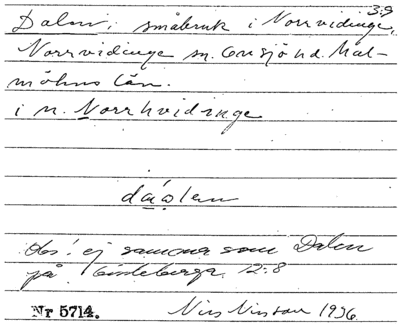 3:9
Dalen, småbruk i Norrvidinge,
Norrvidinge sn. Onsjö hd. Mal-
möhus län.
i n. Norrhvidinge
dáǫlen
Obs! ej samma som Dalen
på 12:8
Nr 5714. Nils Nilsson 1936.